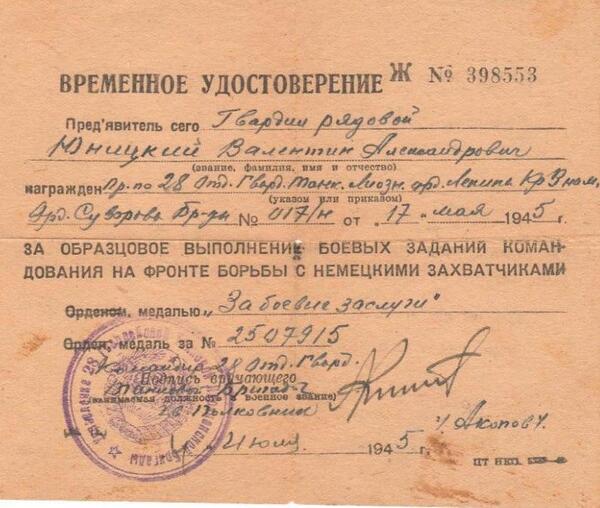 ВРЕМЕННОЕ УДОСТОВЕРЕНИЕ Ж № 398553
Пред'явитель сего Гвардии рядовой
Юницкий Валентин Александрович
(звание, фамилия, имя и отчество)
награжден Пр. по 28 Отд. Гвард. Танк. Лиозн. орд. Ленина Кр Знам,
(указом или приказом)
Орд. Суворова Бр-ды № 017/н от "17" мая 1945 г.
ЗА ОБРАЗЦОВОЕ ВЫПОЛНЕНИЕ БОЕВЫХ ЗАДАНИЙ КОМАН-
ДОВАНИЯ НА ФРОНТЕ БОРЬБЫ С НЕМЕЦКИМИ ЗАХВАТЧИКАМИ
Орденом, медалью „За боевые заслуги"
Орден, медаль за № 2507915
Командир 28 Отд. Гвард.
Подпись вручающего
Танковой Бригады
(занимаемая должность и военное звание)
Гв. Полковник
/Акопов/.
июля 1945 г.